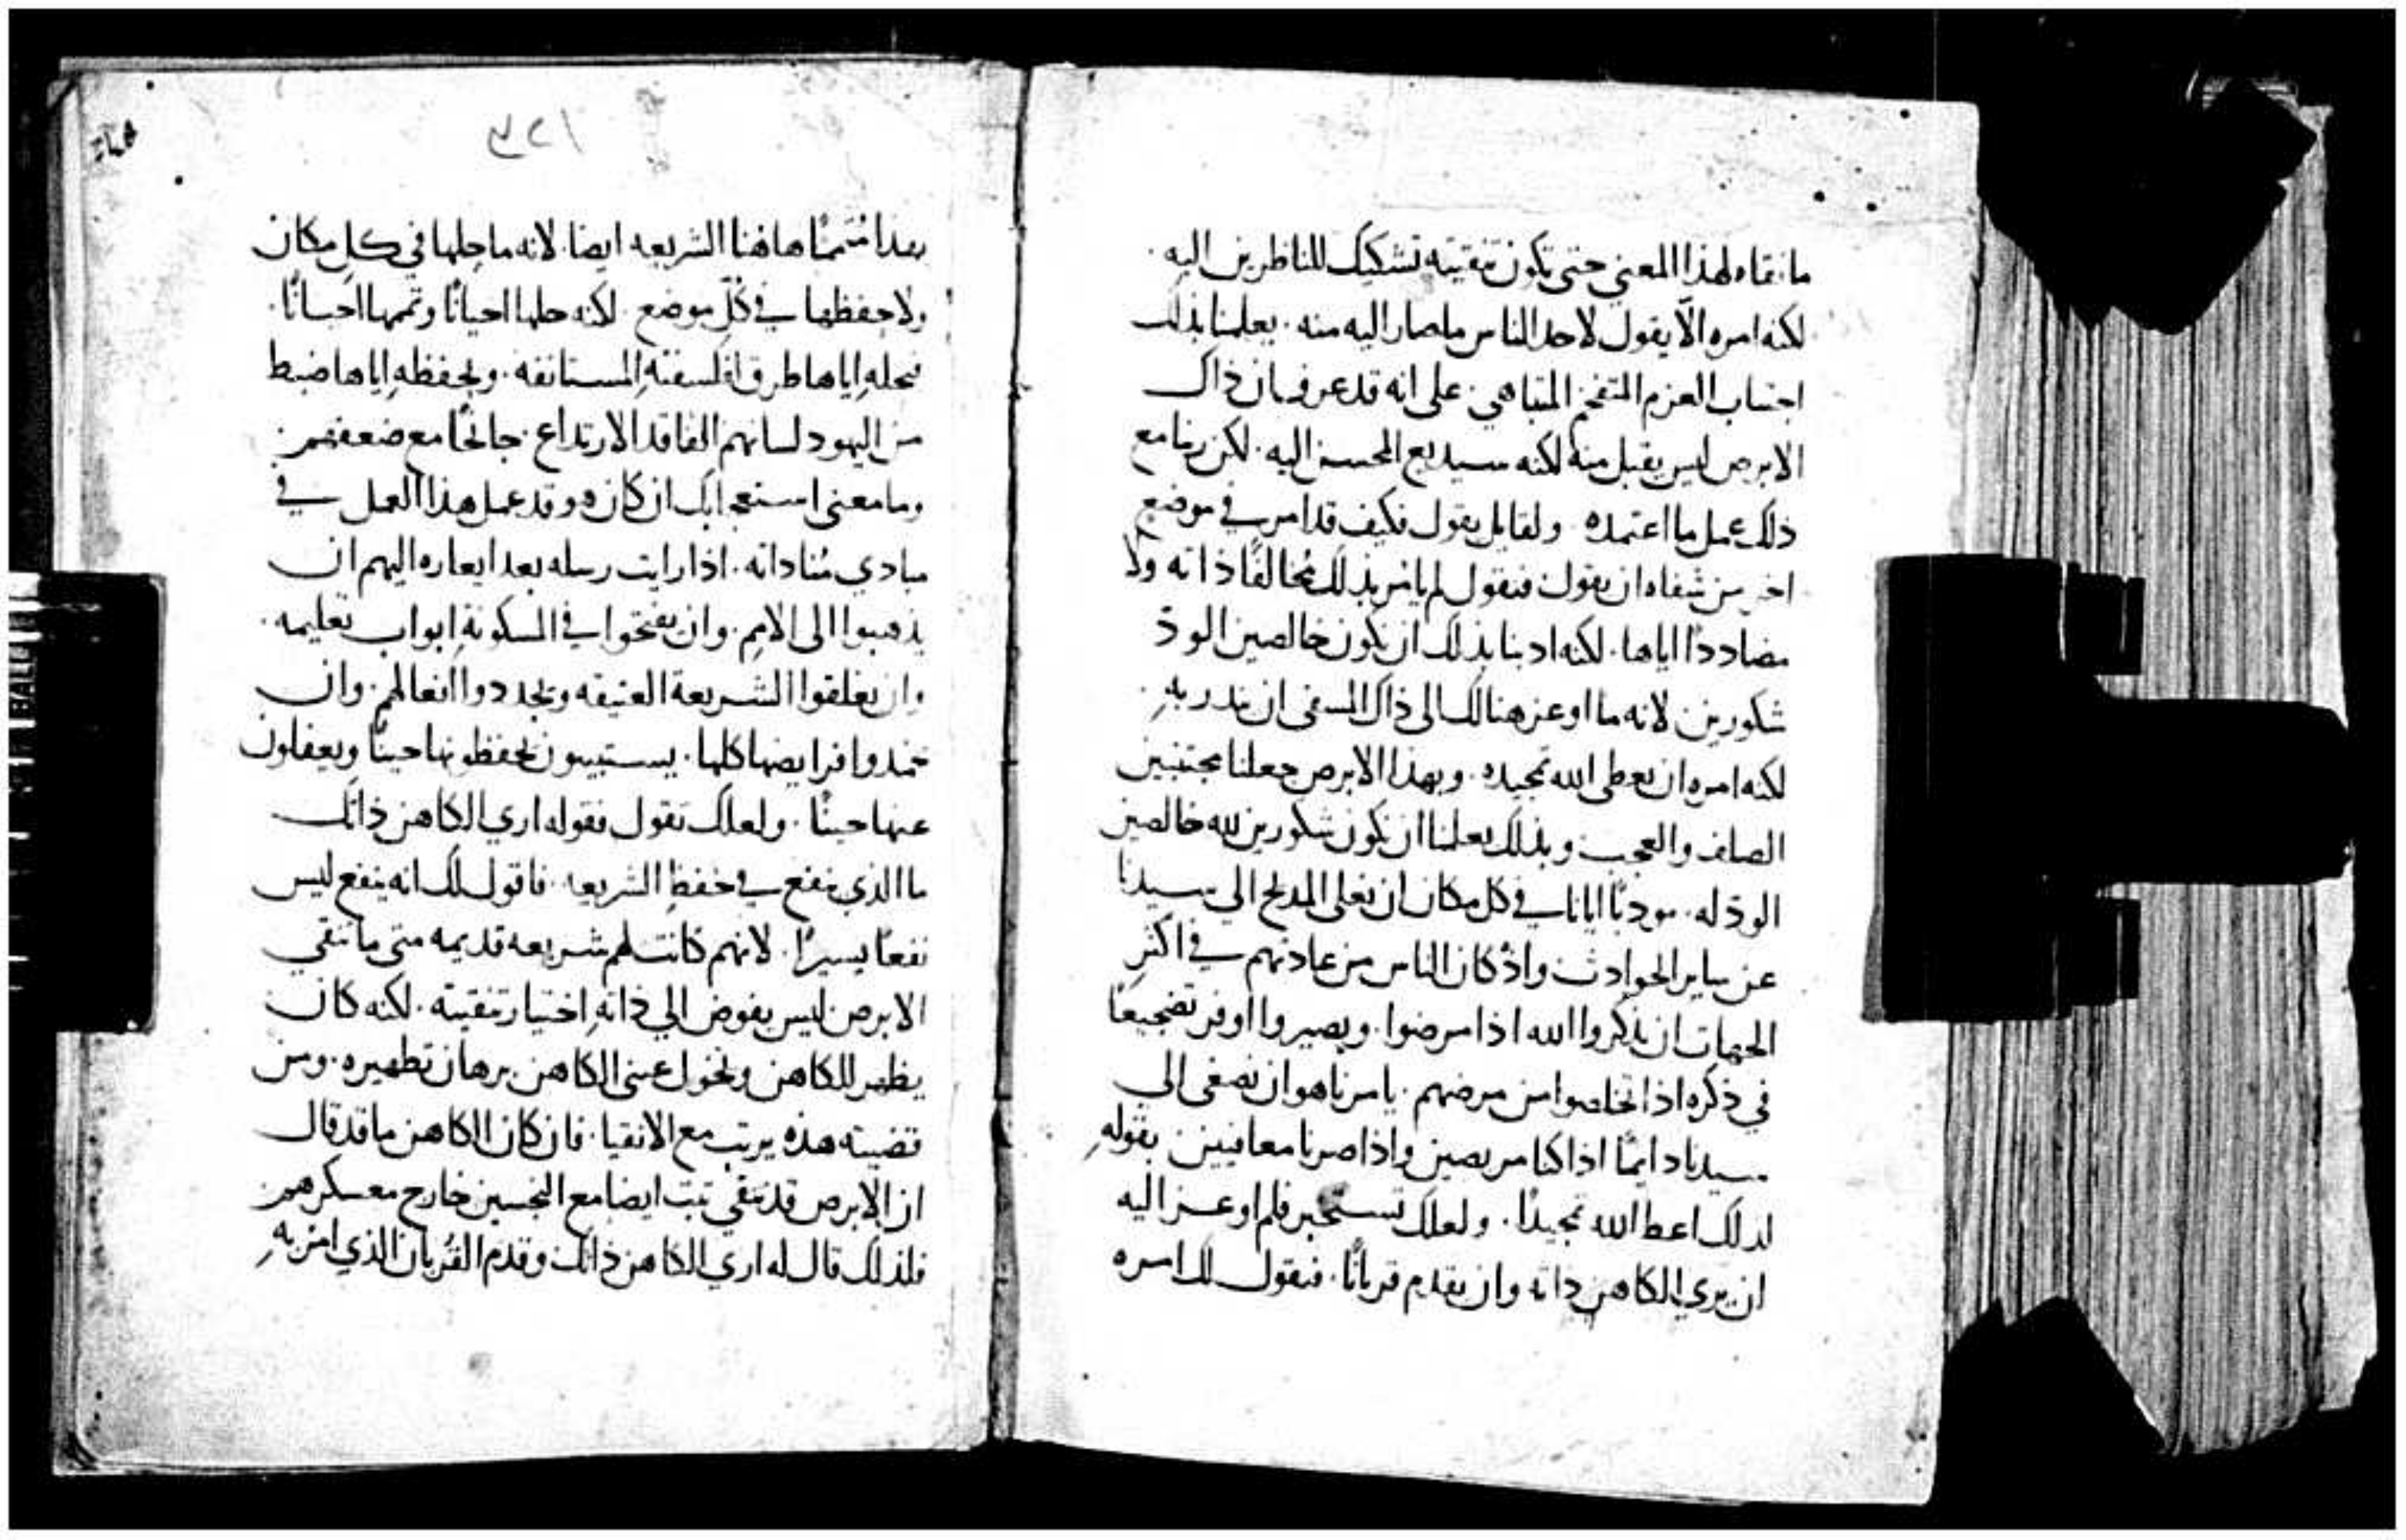 ما نقاه لهذا المعنى حتى تكون تنقيته تشكيك للناظرين اليه.
لكنه امره الّا يقول لاحد الناس ما صار اليه منه. يعلمنا بذلك
اجتناب العزم المتفخم المتباهي. على انه قد عرف بان ذاك
الابرص ليس يقبل منه لكنه سيديع المحسن اليه. لكن ربنا مع
ذلك عمل ما اعتمده. ولقايل يقول فكيف قد امر في موضع
اخر من شفاه ان يقول فنقول لم يامر بذلك مُخالفًا ذاته ولا
مضاددًا اياها. لكنه ادبنا بذلك ان نكون خالصين الودّ
شكورين لانه ما اوعز هنالك الى ذاك المسفى ان يندر به.
لكنه امره ان يعطى الله تمجيده. وبهذا الابرص جعلنا مجتنبين
الصلف والعجب وبذلك يعلمنا ان نكون شكورين لله خالصين
الودّ له. مودبًا ايانا في كل مكان ان نعلى المديح الي سيدنا
عن ساير الحوادث واذ كان الناس من عادتهم في اكثر
الجهات ان يذكروا الله اذا مرضوا. ويصيروا اوفر تضجيعًا
في ذكره اذا تخلصوا من مرضهم. يامرنا هو ان نصغى الي
سيدنا دايمًا اذا كنا مريضين واذا صرنا معافيين بقوله
لذلك اعط الله تمجيدًا. ولعلك تستخبر فلم اوعز اليه
ان يري الكاهن ذاته وان يقدم قربانًا. فنقول لك امره
١٢٣
بهذا مُتممًا هاهنا الشريعه ايضا. لانه ما حلها في كل مكان
ولا حفظها في كُلّ موضع. لكنه حلها احيانًا وتممها احيانًا.
فبحله اياها طرق لفلسفته المستانفه. وبحفظه اياها ضبط
من اليهود لسانهم الفاقد الارتداع. جانحًا مع ضعفهم.
وما معنى استعجابك ان كان هو قد عمل هذا العمل في
مبادي مُناداته. اذا رايت رسله بعد ايعازه اليهم ان
يذهبوا الى الامم. وان يفتحوا في المسكونة ابواب تعليمه.
وان يغلقوا الشريعة العتيقه ويجددوا افعالهم. وان
يخمدوا فرايضها كلها. يستبينون يحفظونها حينًا ويغفلون
عنها حينًا. ولعلك تقول فقوله اري الكاهن ذاتك
ما الذي ينفع في حفظ الشريعه. فاقول لك انه ينفع ليس
نفعًا يسيرًا. لانهم كانت لهم شريعه قديمه متى ما تنقي
الابرص ليس يفوض الي ذاته اختيار تنقيته. لكنه كان
يظهر للكاهن ويخول عيني الكاهن برهان تطهيره. ومن
قضيته هذه يرتب مع الانقيا. فان كان الكاهن ما قد قال
ان الابرص قد تنقي ثبت ايضا مع النجسين خارج معسكرهم
فلذلك قال له اري الكاهن ذاتك وقدم القُربان الذي امر به